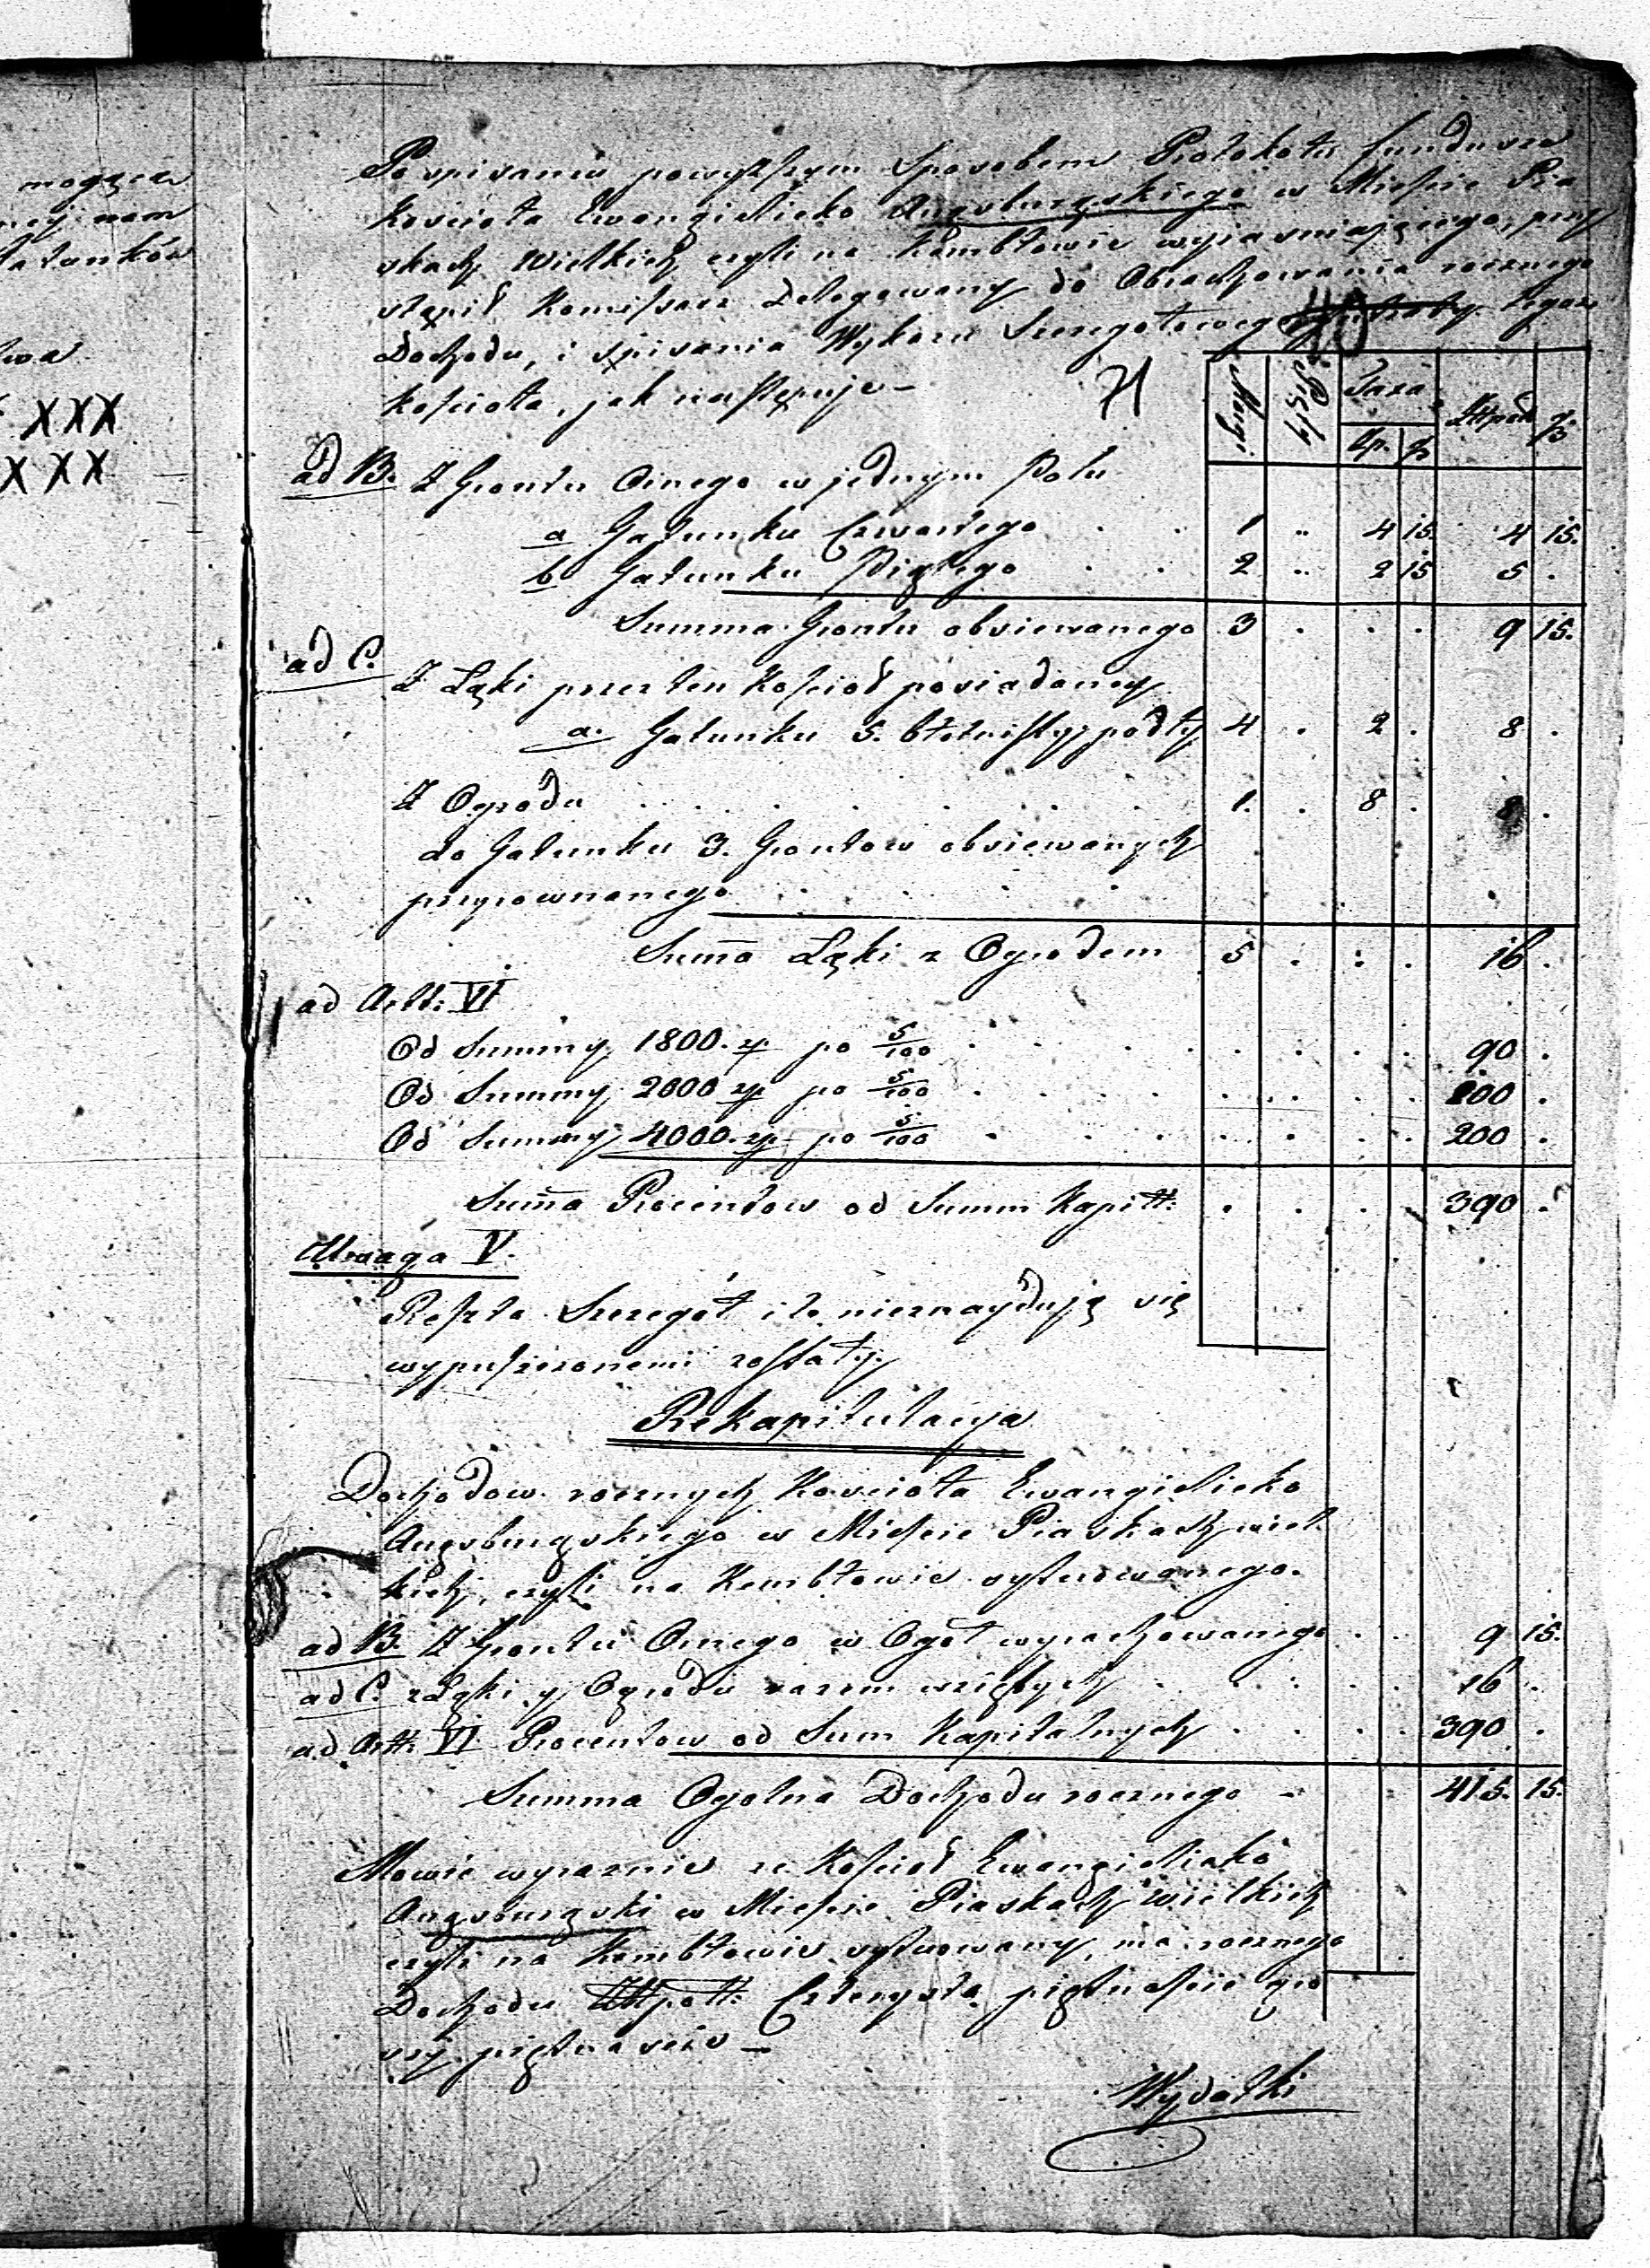 mogąca
nej nam
Gatunków
XXX
XXX
Po spisaniu powyższym Sposobem Protokołu funduszu
Kościoła Ewangielicko Augsburgskiego w Mieście Pia
skach Wielkich czyli na Kembłowie wyiasniaiącego, przy
stąpił Komissarz Delegowany do Obrachowania rocznego
Dochodu, i spisania Wykazu Szczegołowego tegoż
Kościoła, jak następuje –
71
Morgi Pręty Taxa Złpol gr
Zp. gr
ad B. Z Gruntu Ornego w jednym Polu
a Gatunku Czwartego . . 1 „ 4 15. 4 15.
b Gatunku Piątego . . 2 „ 2 15 5 .
Summa Gruntu obsiewanego 3 . . . 9 15.
ad C.
Z Łąki przez ten Kościoł posiadaney
a. Gatunku 5. błotnisty podły 4 . 2 . 8 .
Z Ogrodu . . . . . . 1. . 8 . 8 .
do Gatunku 3. Gruntow obsiewanych
przyrownanego . . . .
Summa Łąki z Ogrodem 5 . . . 16 .
ad Artt: VI
Od Summy 1800. zp. po 5/100 . . . . 90 .
Od Summy 2000 zp. po 5/100 . . . . 100 .
Od Summy 4000. zp. po 5/100 . . . . 200 .
Summa Procentow od Summ Kapitt: . . . . 390 .
Uwaga V.
Reszta Szczegoł ile nieznayduią się
wypuszczonemi zostały
Rekapitulacya
Dochodow rocznych Kościoła Ewangielicko
Augsburgskiego w Mieście Piaskach wiel
kich, czyli na Kembłowie sytuowanego.
ad B. Z Gruntu Ornego w Ogoł wyrachowanego . . 9 15.
ad C. z Łąki y Ogrodu razem wziętych . . . . 16 .
ad Artt: VI Procentow od Sum Kapitalnych . . . . 390 .
Summa Ogolna Dochodu rocznego – . 415. 15.
Mowie wyraznie ze Kościoł Ewangielicko
Augsburgski w Mieście Piaskach Wielkich
czyli na Kembłowie sytuowany, ma rocznego
Dochodu Złtpolt: Czterysta piętnaście gro
szy piętnaście –
Wydatki